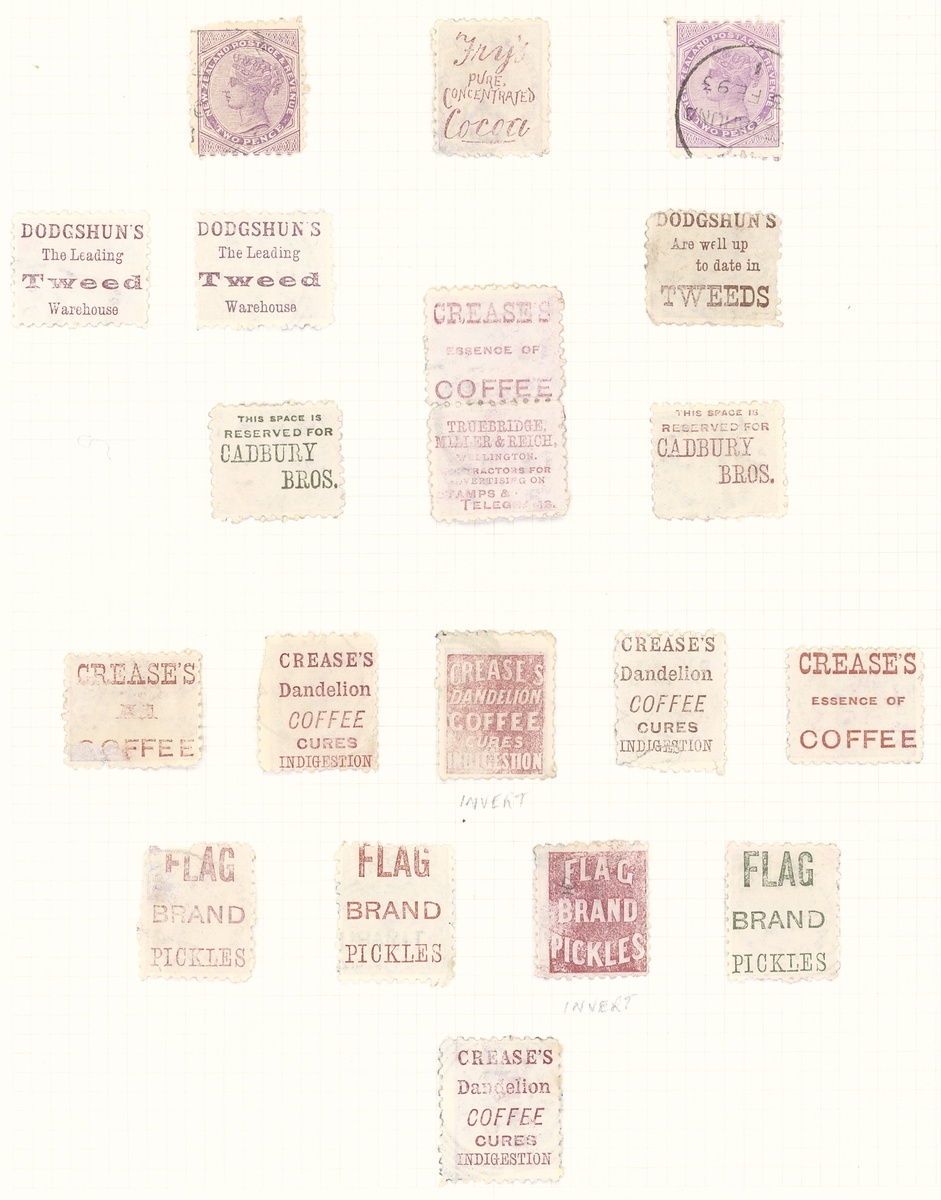 NEW ZEALAND POSTAGE & REVENUE
TWO PENCE
Fry's
PURE,
CONCENTRATED
Cocoa
ZEALAND POSTAGE & REVENUE
TWO PENCE
FE 93
DODGSHUN'S
The Leading
Tweed
Warehouse
DODGSHUN'S
The Leading
Tweed
Warehouse
DODGSHUN'S
Are well up
to date in
TWEEDS
CREASE'S
ESSENCE OF
COFFEE
THIS SPACE IS
RESERVED FOR
CADBURY
BROS.
TRUEBRIDGE,
MILLER & REICH,
WELLINGTON.
CONTRACTORS FOR
ADVERTISING ON
STAMPS &
TELEGRAMS.
THIS SPACE IS
RESERVED FOR
CADBURY
BROS.
CREASE'S
COFFEE
CREASE'S
Dandelion
COFFEE
CURES
INDIGESTION
CREASE'S
DANDELION
COFFEE
CURES
INDIGESTION
CREASE'S
Dandelion
COFFEE
CURES
INDIGESTION
CREASE'S
ESSENCE OF
COFFEE
INVERT
FLAG
BRAND
PICKLES
FLAG
BRAND
PICKLES
FLAG
BRAND
PICKLES
FLAG
BRAND
PICKLES
INVERT
CREASE'S
Dandelion
COFFEE
CURES
INDIGESTION